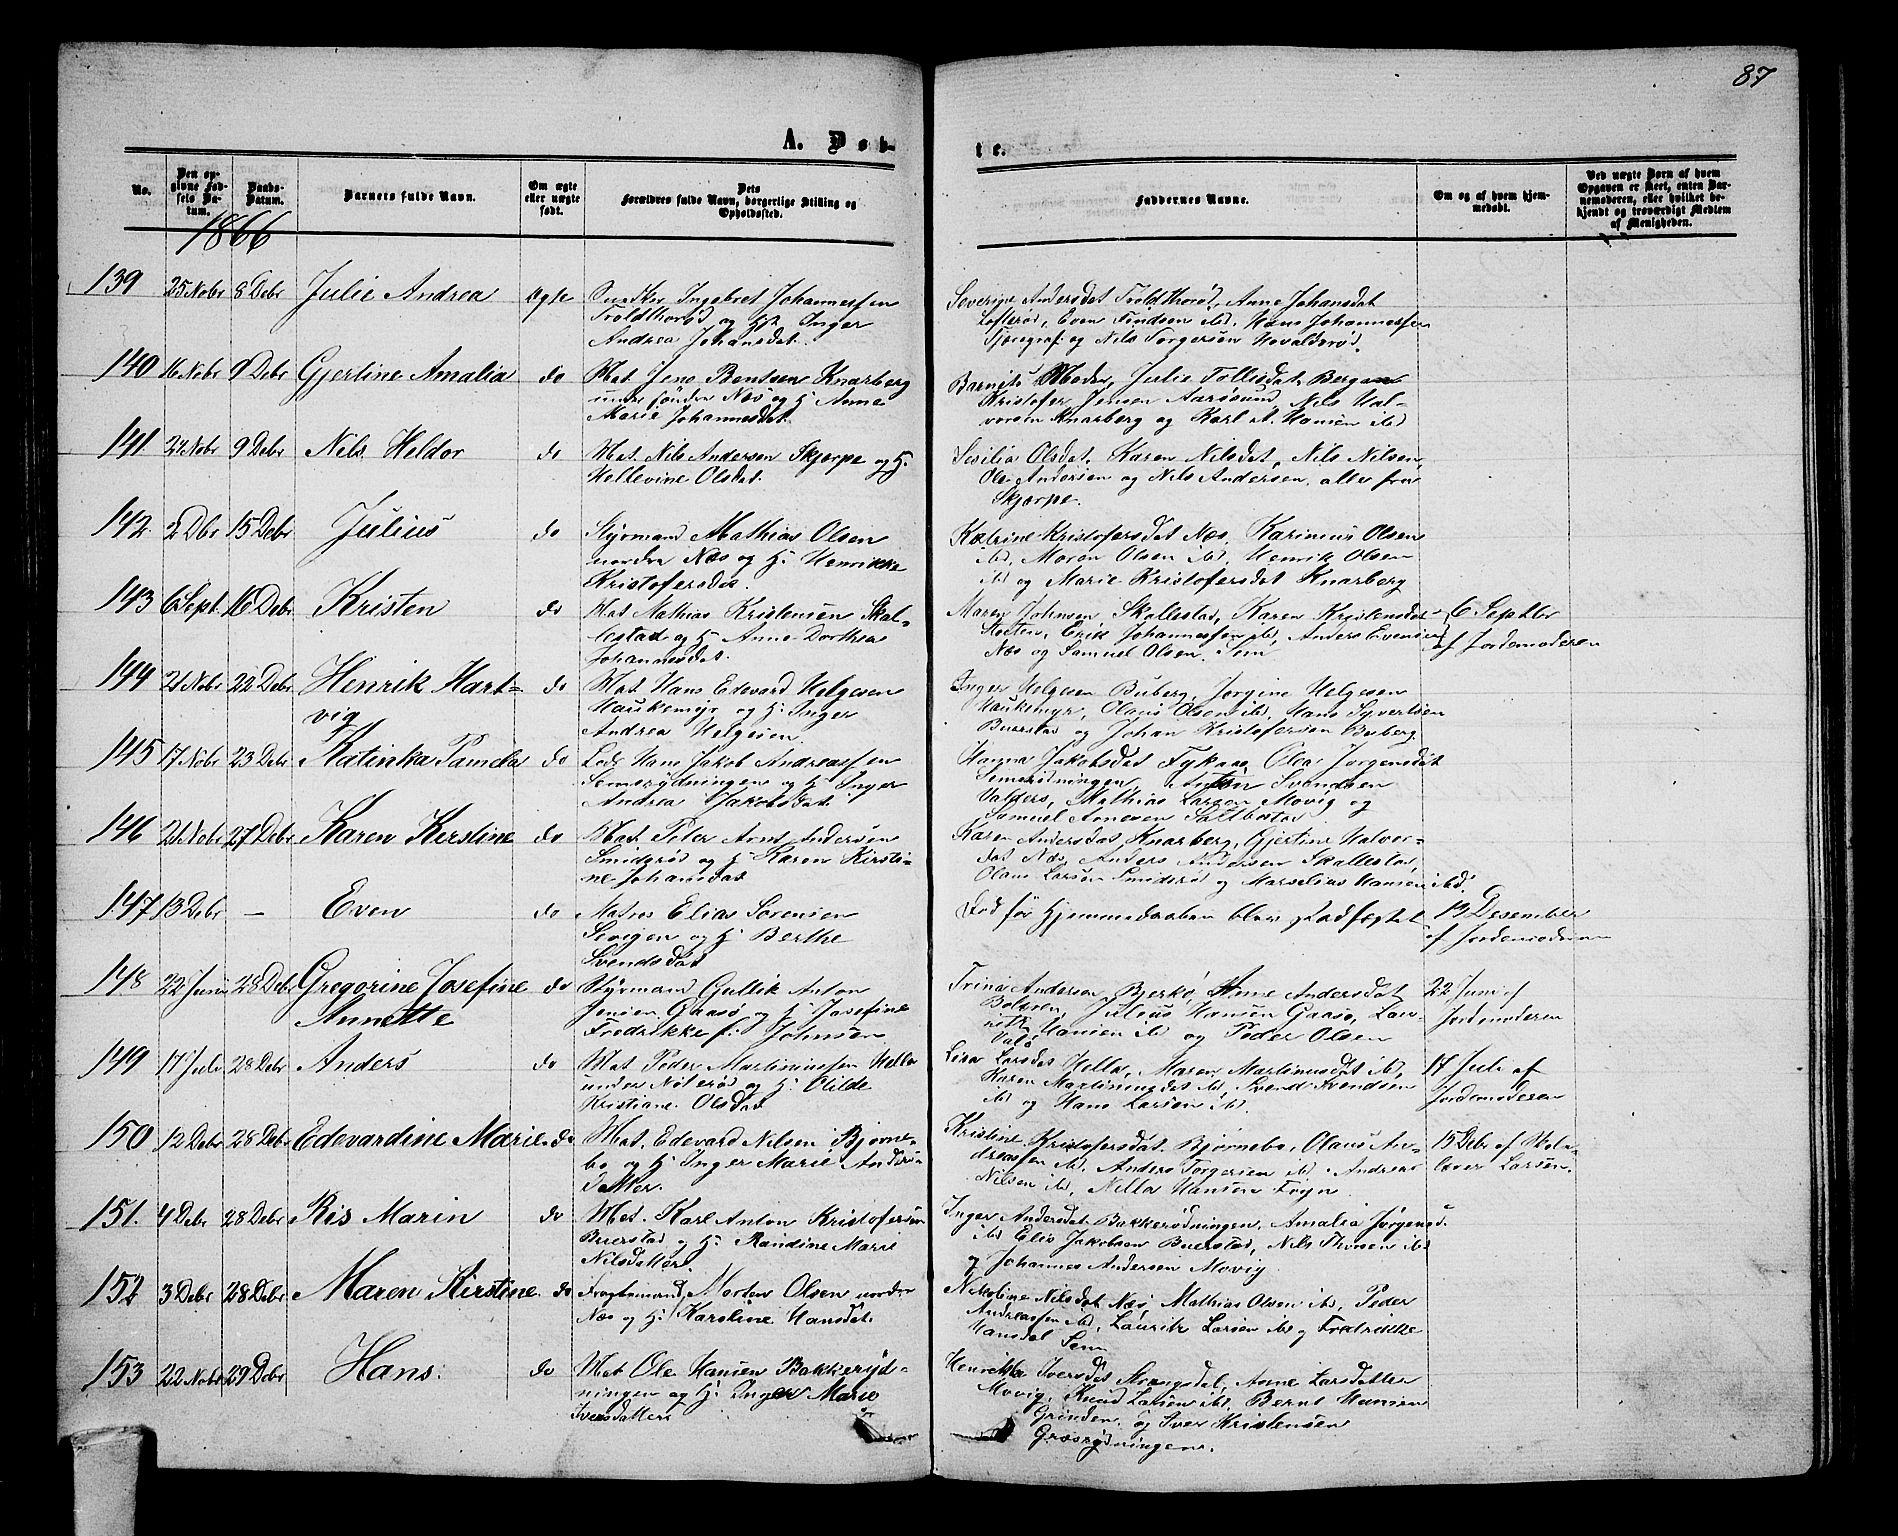 87
A. Døb-
te.
No.
Den opgivne Fødsels Datum.
Daabs-Datum.
Barnets fulde Navn.
Om ægte eller uægte født.
Dets Forældres fulde Navn, borgerlige Stilling og Opholdssted.
Faddernes Navne.
Om og af hvem hjemmedøbt.
Ved uægte Børn af hvem Opgaven er skeet, enten Barnemoderen, eller hvilket bekjendt og troværdigt Medlem af Menigheden.
1866
139 25 Nobr 8 Debr Julie Andrea ægte Ingebret Johannessen
Troldthorød og Hst Inger
Andrea Johansdat.
Severine Andersdat Troldthorød, Anne Johansdat
Lofterød, Even ibd, Hans Johannessen
og Nils Torgersen Hovaldsrød.
140 16 Nobr 9 Debr Gjertine Amalia do Mat. Jens Bentsen Knarberg
under søndre Næs og H. Anne
Marie Johannesdat.
Barnets Moder, Julie Tollisdat Bergan
Kristofer Jensen Aarøsund, Nils Hal-
vorsen Knarberg og Karl A. Hansen ibd
141. 24 Nobr 9 Debr Nils Heldor do Mat. Nils Andersen Skjerpe og H.
Hellevine Olsdat.
Sesilia Olsdat, Karen Nilsdat, Nils Nilsen,
Ole Andersen og Nils Andersen. alle fra
Skjærpe.
142. 2 Dbr 15 Debr Julius do Styrmand Mathias Olsen
nordre Næs og H. Henrikke
Kristofersdat.
Katrine Kristofersdat Næs, Karinius Olsen
ibd, Maren Olsen ibd, Henrik Olsen
ibd og Marie Kristofersdat Knarberg
143 6 Sept. 16 Debr Kristen do Mat Mathias Kristensen Skal-
lestad og H. Anne Dorthea
Johannesdat.
Maren Johnsen, Skallestad, Karen Kristensdat
Erik Johannessen ibd, Anders Evensen
Næs og Samuel Olsen. Sem
6 Septbr
af Jordemoderen
144 21 Nobr 22 Debr Henrik Hart-
vig
do Mat. Hans Edevard Helgesen
Haukemyr og H. Inger
Andrea Helgesen.
Inger Helgesen Buberg, Jørgine Helgesen
Haukemyr, Olaus Olsen ibd, Hans Syvertsen
Buerstad og Johan Kristofersen Buberg.
145 17 Nobr 23 Debr Katinka Pamela do Lods Hans Jakob Andreassen
Semsrydningen og H. Inger
Andrea Jakobsdat.
Hanna Jakobsdat Olea Jørgensdat
Semsrydningen Anton Svendsen
Valders, Mathias Larsen Movig og
Samuel Arnesen Saltbostad
146 21 Nobr 27 Debr Karen Kerstine do Mat. Peter Arnt Andersen
Smidsrød og H. Karen Kirsti-
ne Johansdat
Karen Andersdat Knarberg, Gjertine Halvor-
dat Næs, Anders Andersen Skallestad,
Olaus Larsen Smidsrød og Marselius Hansen ibd.
147 13 Debr — Even do Matros Elias Sørensen
og H. Berthe
Svendsdat
Død før Hjemmedaaben blev stadfæstet
13 Desember
af Jordemoderen
148 22 Juni 28 Debr Gregorine Josefine
Annette
do Styrmand Gullik Anton
Jensen Gaasø og H. Josefine
Fredrikke f. Johnsen
Trina Andersen Bjerkø, Anne Andersdat
Bolærn, Julius Hansen Gaasø, Lau-
ritz Hansen ibd og Peder Olsen
Valø
22 Juni af
Jordemoderen
149 17 Juli 28 Debr Anders do Mat. Peder Martiniussen Hella
under Nøterø og H. Olilde
Kristiane Olsdat
Lisa Larsdat Hella, Maren Martinusdat ibd,
Karen Martinusdat ibd, Svend Svendsen
ibd og Hans Larsen ibd.
17 Juli af
Jordemoderen
150 12 Debr 28 Debr Edevardine Marie do Mat. Edevard Nilsen Bjørne-
bo og H. Inger Marie Anders-
datter.
Kristine Kristofersdat Bjørnebo, Olaus An-
dreassen ibd. Anders Torgersen ibd. Andreas
Nilsen ibd, Nella Hansen Frøyn.
15 Debr af Skole-
lærer Larsen.
151. 4 Debr 28 Debr Ris Marin do Mat. Karl Anton Kristofersen
Buerstad og H. Randine Marie
Nilsdatter.
Inger Andersdat Bakkerødningen, Amalia Jørgensd.
ibd Elis Jakobsen Buerstad, Nils Thomsen ibd
og Johannes Andersen Movig.
152 3 Debr 28 Debr Maren Kirstine do Fragtemand Morten Olsen nordre
Næs og H. Karoline Hansdat.
Nikoline Nilsdat Næs, Mathias Olsen ibd, Peder
Andreassen ibd, Lauritz Larsen ibd og Fredrikke
Hansdat Sem
153 22 Nobr 29 Debr Hans. do Mat Ole Hansen Bakkeryd-
ningen og H. Inger Marie
Iversdatter
Henrikka Iversdat Anne Larsdatter
Movig, Knud Larsen ibd. Bernt Hansen
Grinden. og Iver Kristensen
Græsrydningene.